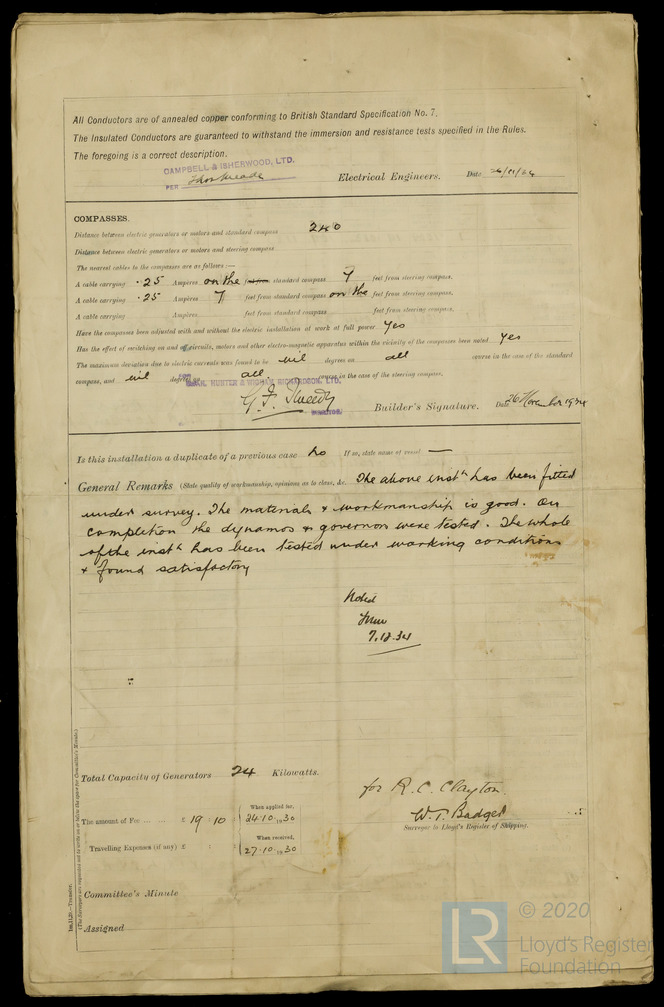 All Conductors are of annealed copper conforming to British Standard Specification No. 7.
The Insulated Conductors are guaranteed to withstand the immersion and resistance tests specified in the Rules.
The foregoing is a correct description.
CAMPBELL & ISHERWOOD, LTD.
PER Electrical Engineers. Date
COMPASSES.
Distance between electric generators or motors and standard compass 240
Distance between electric generators or motors and steering compass
The nearest cables to the compasses are as follows:—
A cable carrying .25 Ampères on the standard compass 7 feet from steering compass.
A cable carrying .25 Ampères 7 feet from standard compass on the feet from steering compass.
A cable carrying Ampères feet from standard compass feet from steering compass.
Have the compasses been adjusted with and without the electric installation at work at full power yes
Has the effect of switching on and off circuits, motors and other electro-magnetic apparatus within the vicinity of the compasses been noted yes
The maximum deviation due to electric currents was found to be nil degrees on all course in the case of the standard
compass, and nil degrees on all course in the case of the steering compass.
HUNTER & WIGHAM RICHARDSON, LTD.
G. F. Tweedy Builder's Signature. Date 26 November 1934
Is this installation a duplicate of a previous case no If so, state name of vessel —
General Remarks (State quality of workmanship, opinions as to class, &c. The above instn has been fitted
under survey. The materials & workmanship is good. On
completion the dynamos & governor were tested. The whole
of the instn has been tested under working conditions
& found satisfactory
Noted
7.12.34
Total Capacity of Generators 24 Kilowatts.
for R. C. Clayton.
W. T. Badger
Surveyor to Lloyd's Register of Shipping.
The amount of Fee £ 19 . 10 When applied for, 24.10.1930
Travelling Expenses (if any) £ When received, 27.10.1930
Committee's Minute
Assigned
(The Surveyors are requested not to write on or below the space for Committee's Minute.)
LR © 2020
Lloyd's Register
Foundation